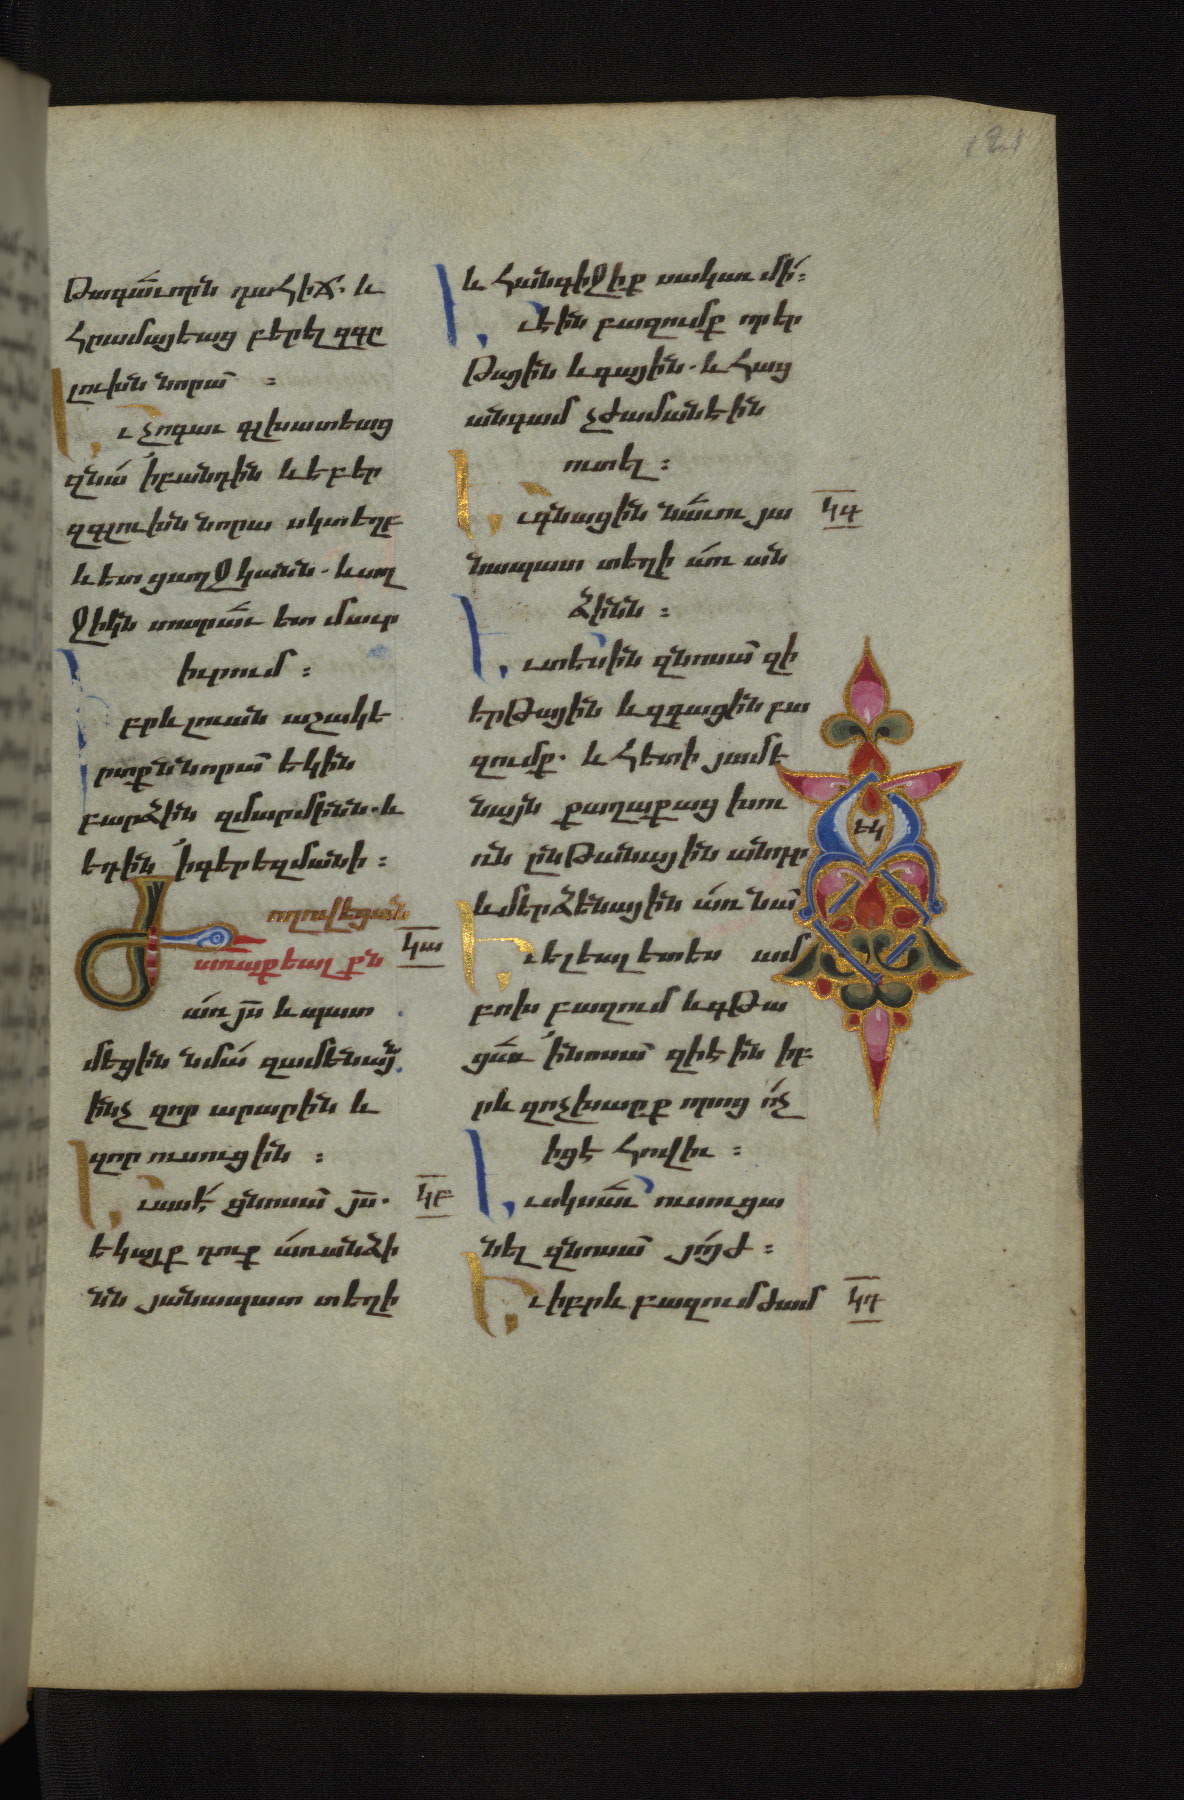 121
Թագաւորն դահիճ. և
հրամայեաց բերել զգը
լուխն նորա :
Եւ չոգաւ գլխատեաց
զնա ՛ի բանդին և եբեր
զգլուխն նորա սկտեղբ
և ետ ցաղջկանն. և աղ
ջիկն տարաւ ետ մաւր
իւրում :
Իբրև լուան աշակե
րտքն նորա եկին
բարձին զմարմինն. և
եդին ՛ի գերեզմանի :
Ժողովեցան
առաքեալքն
առ յս և պատ
մեցին նմա զամենայն
ինչ զոր արարին և
զոր ուսուցին :
Եւ ասէ ցնոսա յս.
եկայք դուք առանձի
նն յանապատ տեղի
և հանգիջիք սակաւ մի :
Եւ էին բազումք որ եր
թային և գային. և հաց
անգամ չժամանէին
ուտել :
Եւ գնացին նաւու յա
նապատ տեղի առան
ձինն :
Եւ տեսին զնոսա զի
երթային և գիտացին բա
զումք. և հետի յամե
նայն քաղաքաց խու
ռն ընթանային անդր
և մերձենային առ նա
Եւ ելեալ ետես ամ
բոխ բազում և գթա
ցաւ ՛ի նոսա զի էին իբ
րև զոչխարք որոց ոչ
իցէ հովիւ :
Եւ սկսաւ ուսուցա
նել զնոսա յոյժ :
Եւ իբրև բազում ժամ
կա
կբ
կգ
կդ
ԷԿ